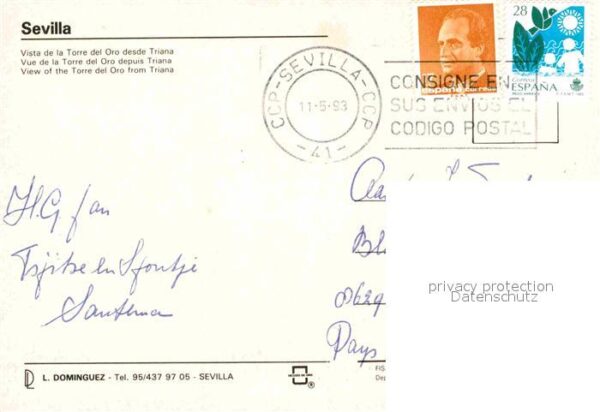 Sevilla
Vista de la Torre del Oro desde Triana
Vue de la Torre del Oro depuis Triana
View of the Torre del Oro from Triana
CCP-SEVILLA-CCP
11-5-93
-41-
CONSIGNE EN
SUS ENVIOS EL
CODIGO POSTAL
España correos
28
ESPAÑA
H.G. fan
Tsjitse en Sjoutsje
Santema
Bl
Pays
privacy protection
Datenschutz
L. DOMINGUEZ - Tel. 95/437 97 05 - SEVILLA
FIS
Dep